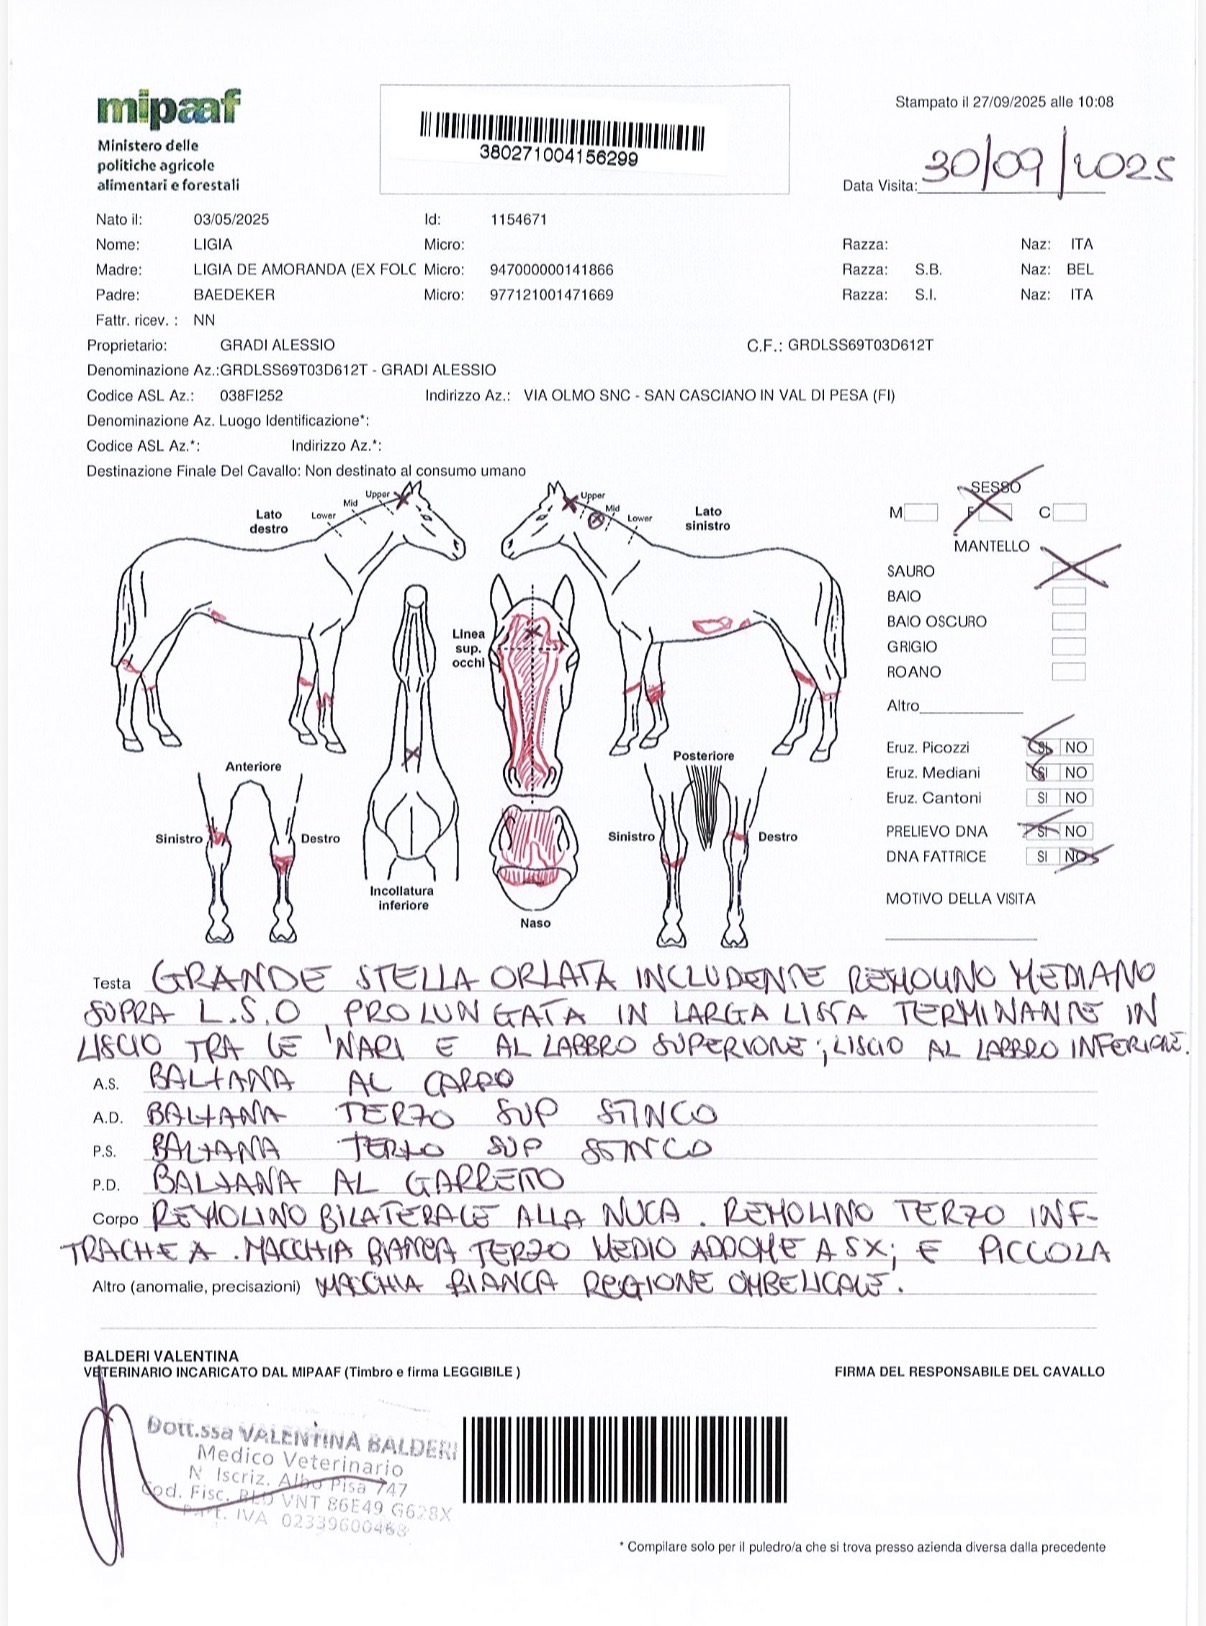 mipaaf
Ministero delle
politiche agricole
alimentari e forestali
380271004156299
Stampato il 27/09/2025 alle 10:08
Data Visita: 30/09/2025
Nato il: 03/05/2025 Id: 1154671
Nome: LIGIA Micro: Razza: Naz: ITA
Madre: LIGIA DE AMORANDA (EX FOLC Micro: 947000000141866 Razza: S.B. Naz: BEL
Padre: BAEDEKER Micro: 977121001471669 Razza: S.I. Naz: ITA
Fattr. ricev. : NN
Proprietario: GRADI ALESSIO C.F.: GRDLSS69T03D612T
Denominazione Az.:GRDLSS69T03D612T - GRADI ALESSIO
Codice ASL Az.: 038FI252 Indirizzo Az.: VIA OLMO SNC - SAN CASCIANO IN VAL DI PESA (FI)
Denominazione Az. Luogo Identificazione*:
Codice ASL Az.*: Indirizzo Az.*:
Destinazione Finale Del Cavallo: Non destinato al consumo umano
Lato destro
Lower Mid Upper
Upper Mid Lower
Lato sinistro
Linea sup. occhi
Anteriore
Sinistro Destro
Incollatura inferiore
Naso
Posteriore
Sinistro Destro
SESSO
M F C
MANTELLO
SAURO
BAIO
BAIO OSCURO
GRIGIO
ROANO
Altro
Eruz. Picozzi SI NO
Eruz. Mediani SI NO
Eruz. Cantoni SI NO
PRELIEVO DNA SI NO
DNA FATTRICE SI NO
MOTIVO DELLA VISITA
Testa GRANDE STELLA ORLATA INCLUDENTE REMOLINO MEDIANO
SOPRA L.S.O, PROLUNGATA IN LARGA LISTA TERMINANTE IN
LISCIO TRA LE NARI E AL LABBRO SUPERIORE; LISCIO AL LABBRO INFERIORE.
A.S. BALZANA AL CARPO
A.D. BALZANA TERZO SUP STINCO
P.S. BALZANA TERZO SUP STINCO
P.D. BALZANA AL GARRETTO
Corpo REMOLINO BILATERALE ALLA NUCA. REMOLINO TERZO INF-
TRACHEA. MACCHIA BIANCA TERZO MEDIO ADDOME A SX; E PICCOLA
Altro (anomalie, precisazioni) MACCHIA BIANCA REGIONE OMBELICALE.
BALDERI VALENTINA
VETERINARIO INCARICATO DAL MIPAAF (Timbro e firma LEGGIBILE ) FIRMA DEL RESPONSABILE DEL CAVALLO
Dott.ssa VALENTINA BALDERI
Medico Veterinario
N Iscriz. Albo Pisa 747
Cod. Fisc. BLD VNT 86E49 G628X
Part. IVA 02339600468
* Compilare solo per il puledro/a che si trova presso azienda diversa dalla precedente